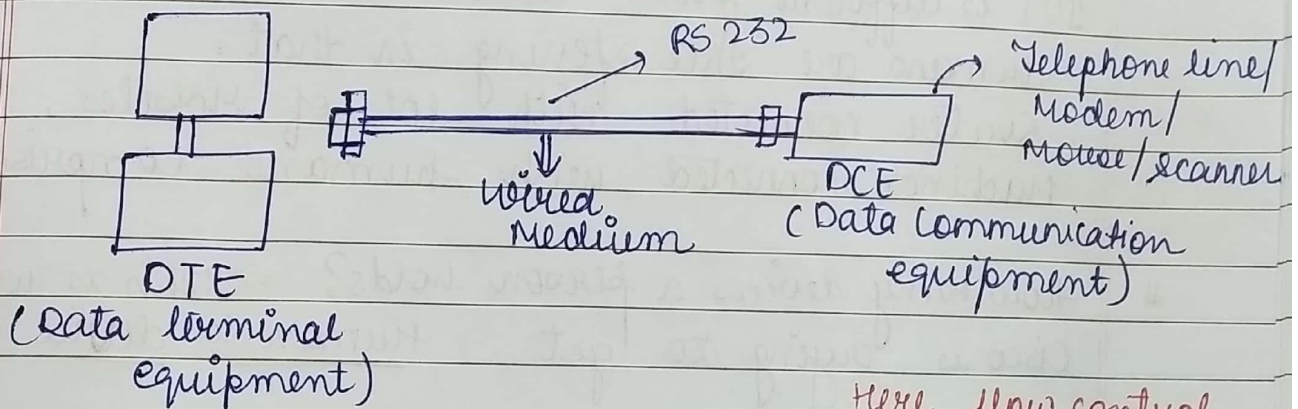 RS 232
Telephone line/
Modem/
Mouse/scanner
wired
Medium
DCE
(Data Communication
equipment)
DTE
(Data terminal
equipment)
Here flow control